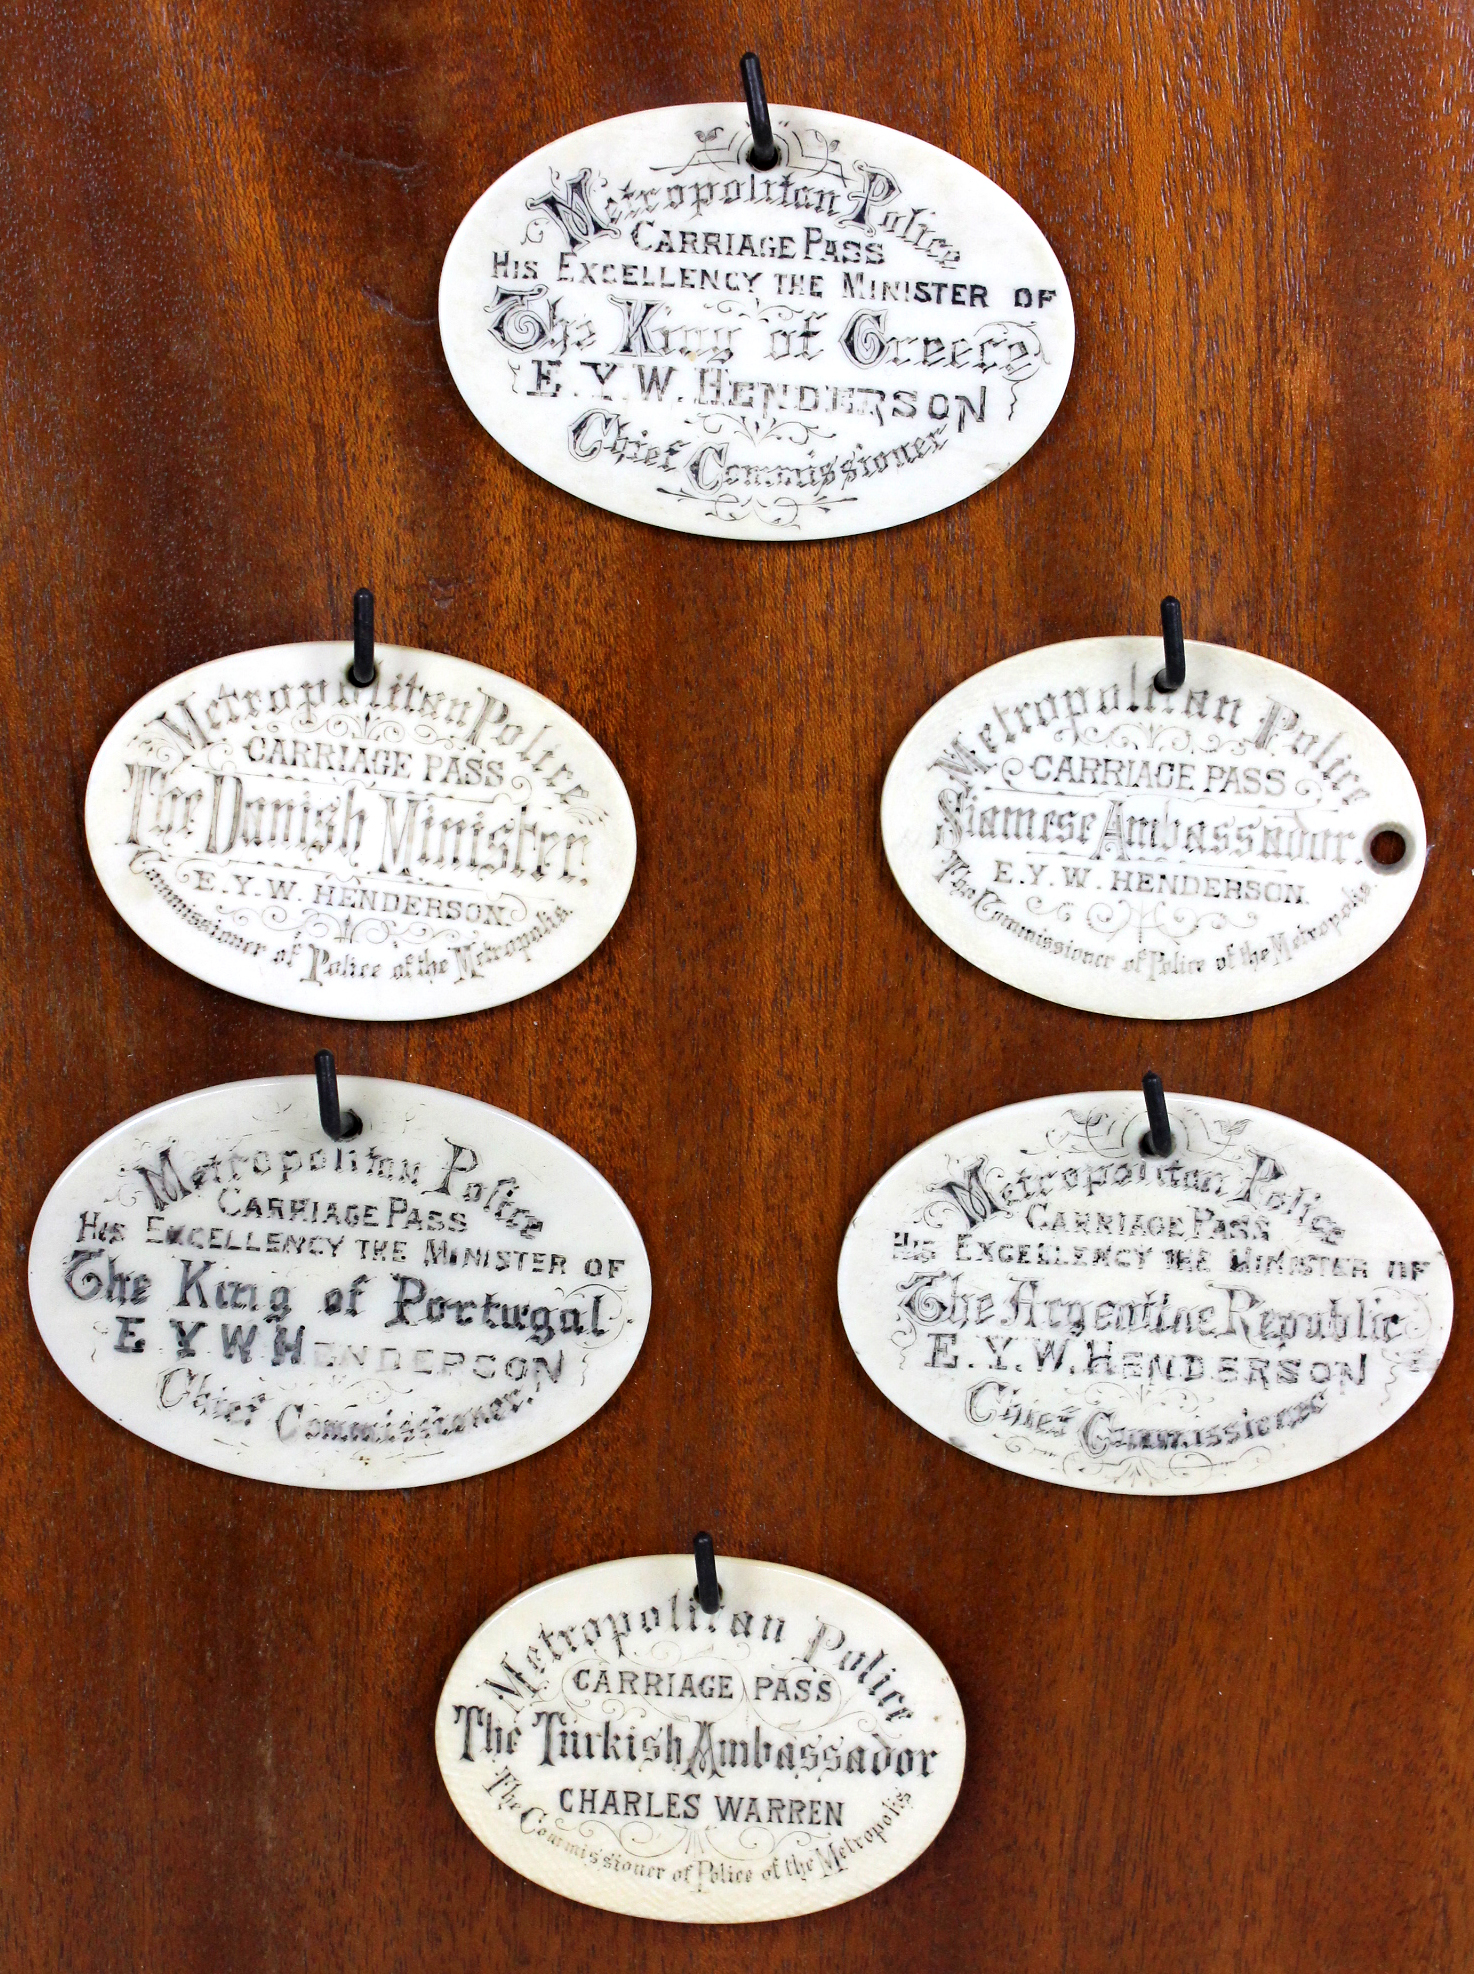 Metropolitan Police
CARRIAGE PASS
HIS EXCELLENCY THE MINISTER OF
The King of Greece
E.Y.W. HENDERSON
Chief Commissioner
Metropolitan Police
CARRIAGE PASS
The Danish Minister.
E.Y.W. HENDERSON.
Commissioner of Police of the Metropolis.
Metropolitan Police
CARRIAGE PASS
Siamese Ambassador.
E.Y.W. HENDERSON.
The Commissioner of Police of the Metropolis.
Metropolitan Police
CARRIAGE PASS
HIS EXCELLENCY THE MINISTER OF
The King of Portugal
E Y W HENDERSON
Chief Commissioner.
Metropolitan Police
CARRIAGE PASS
HIS EXCELLENCY THE MINISTER OF
The Argentine Republic
E.Y.W. HENDERSON
Chief Commissioner
Metropolitan Police
CARRIAGE PASS
The Turkish Ambassador
CHARLES WARREN
The Commissioner of Police of the Metropolis